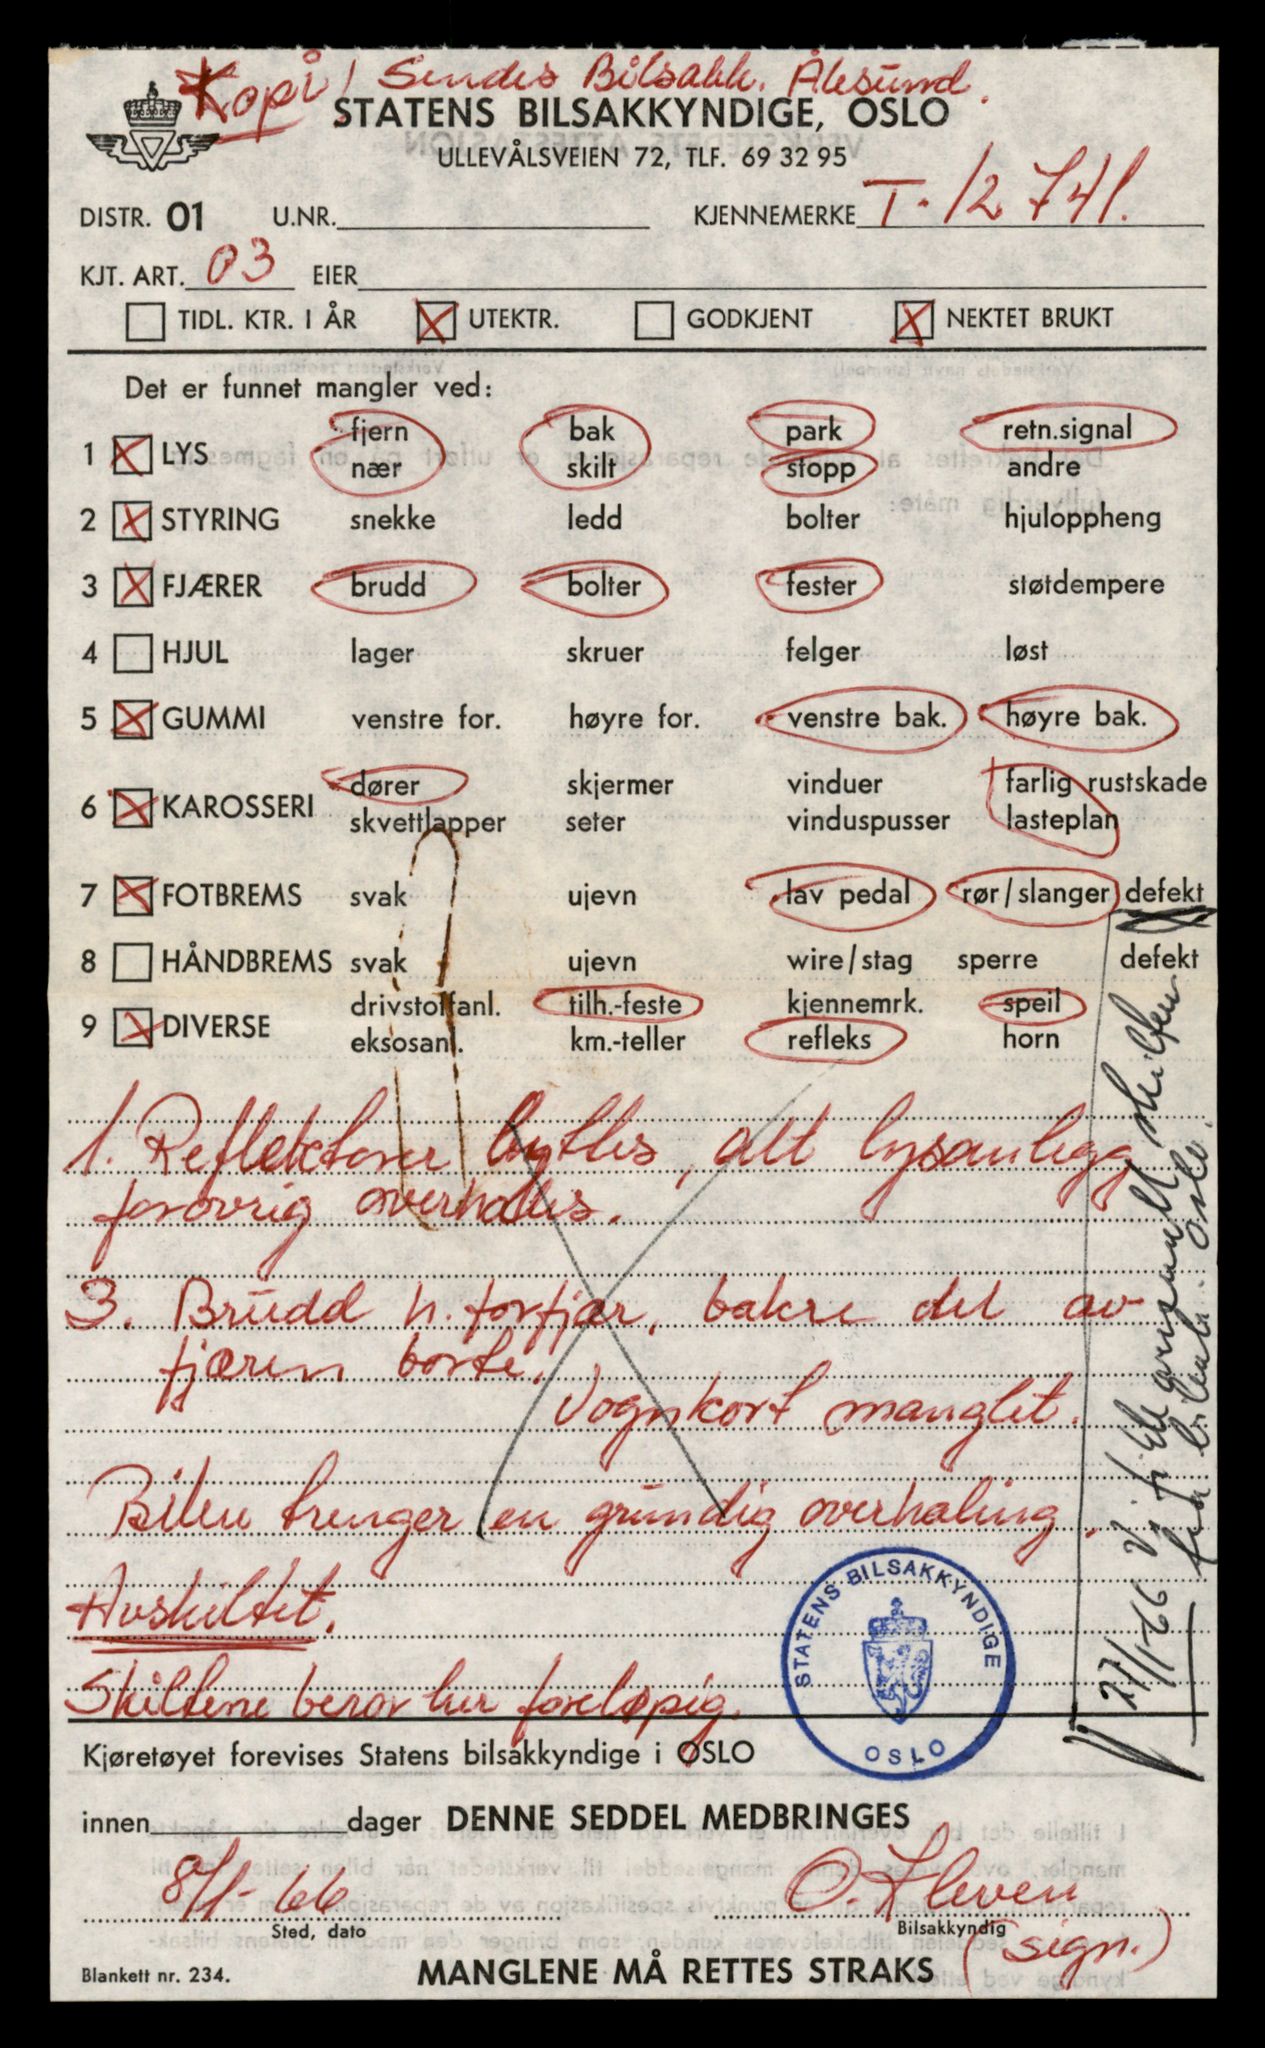 Kopi! Sendes Bilsakk. Ålesund.
STATENS BILSAKKYNDIGE, OSLO
ULLEVÅLSVEIEN 72, TLF. 69 32 95
DISTR. 01 U.NR. KJENNEMERKE T-12741.
KJT. ART. 03 EIER
TIDL. KTR. I ÅR UTEKTR. GODKJENT NEKTET BRUKT
Det er funnet mangler ved:
fjern bak park retn.signal
1 LYS
nær skilt stopp andre
2 STYRING snekke ledd bolter hjuloppheng
3 FJÆRER brudd bolter fester støtdempere
4 HJUL lager skruer felger løst
5 GUMMI venstre for. høyre for. venstre bak. høyre bak.
dører skjermer vinduer farlig rustskade
6 KAROSSERI
skvettlapper seter vinduspusser lasteplan
7 FOTBREMS svak ujevn lav pedal rør/slanger defekt
8 HÅNDBREMS svak ujevn wire/stag sperre defekt
drivstoffanl. tilh.-feste kjennemrk. speil
9 DIVERSE
eksosanl. km.-teller refleks horn
1. Reflektorer byttes, alt lysanlegg
forøvrig overhales.
3. Brudd h. forfjær, bakre del av
fjæren borte.
Vognkort manglet.
Bilen trenger en grundig overhaling.
Avskiltet.
Skiltene beror her foreløpig.
27/1-66 Vi har skilter
fra Oslo.
STATENS BILSAKKYNDIGE
OSLO
Kjøretøyet forevises Statens bilsakkyndige i OSLO
innen dager DENNE SEDDEL MEDBRINGES
8/1-66 O. Kleven
Sted, dato Bilsakkyndig
(sign.)
Blankett nr. 234. MANGLENE MÅ RETTES STRAKS